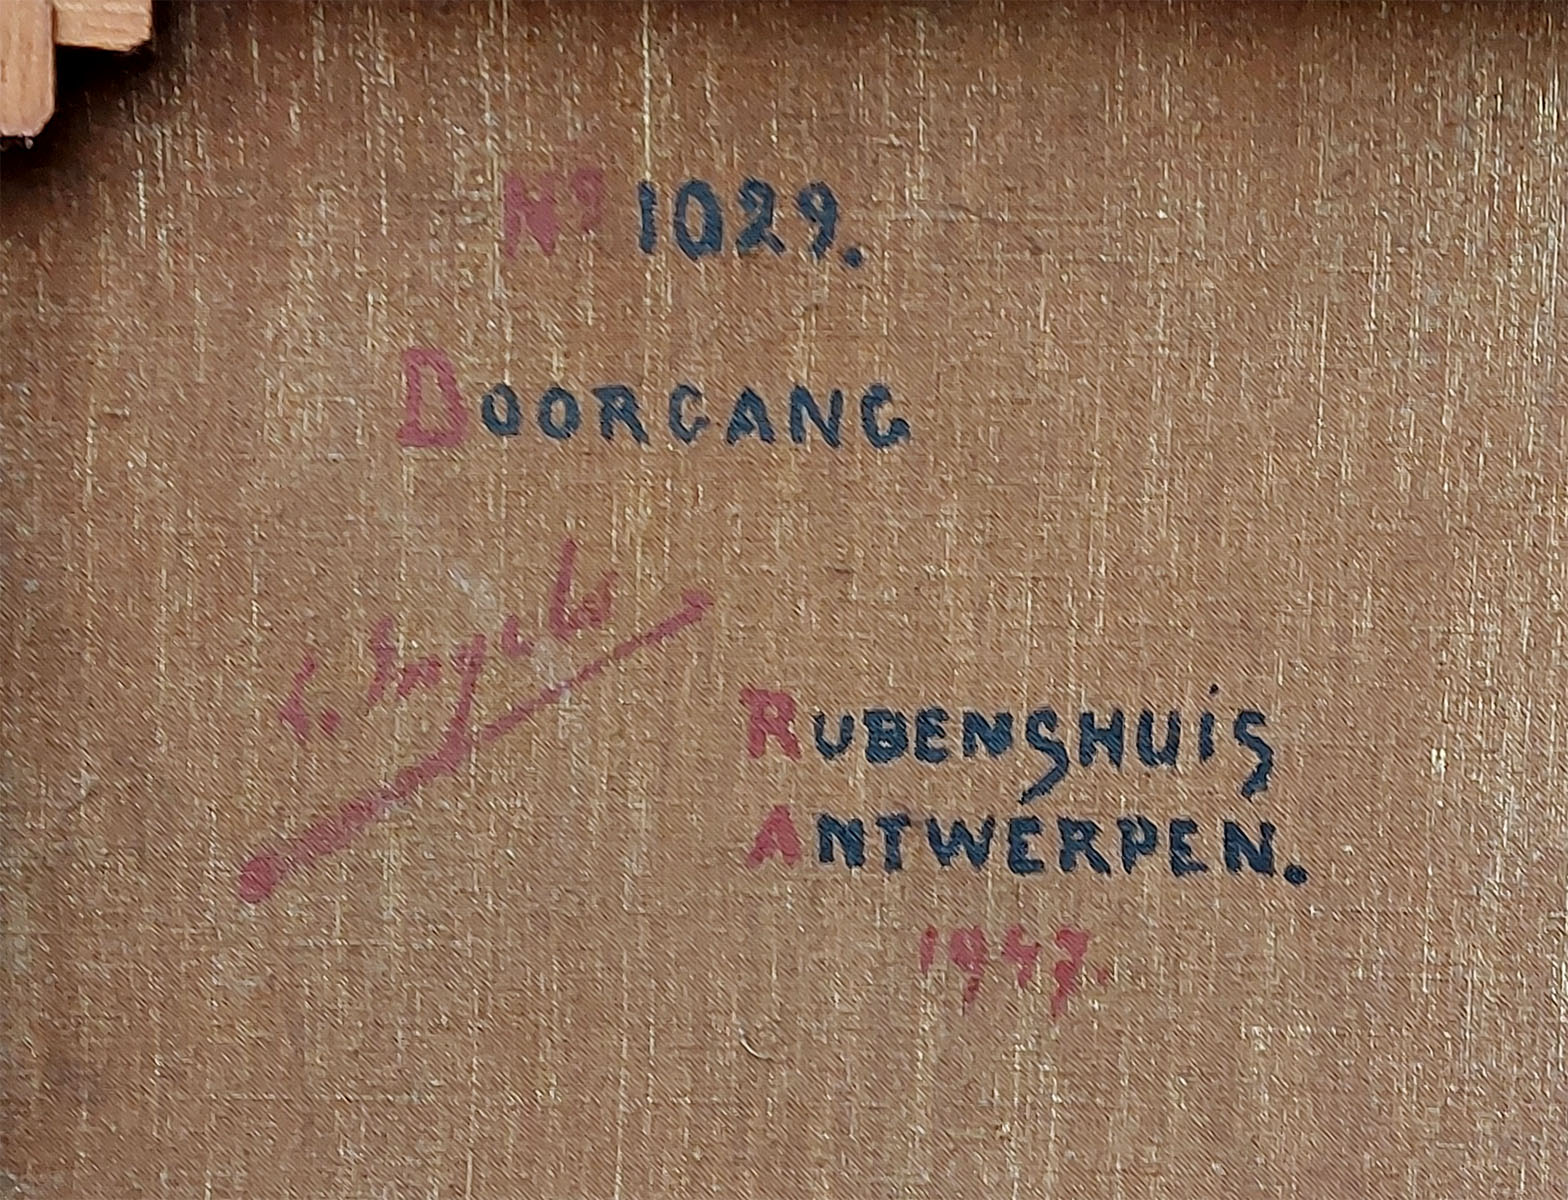 Nº 1029.
DOORGANG
Ingels
RUBENSHUiS
ANTWERPEN.
1947.